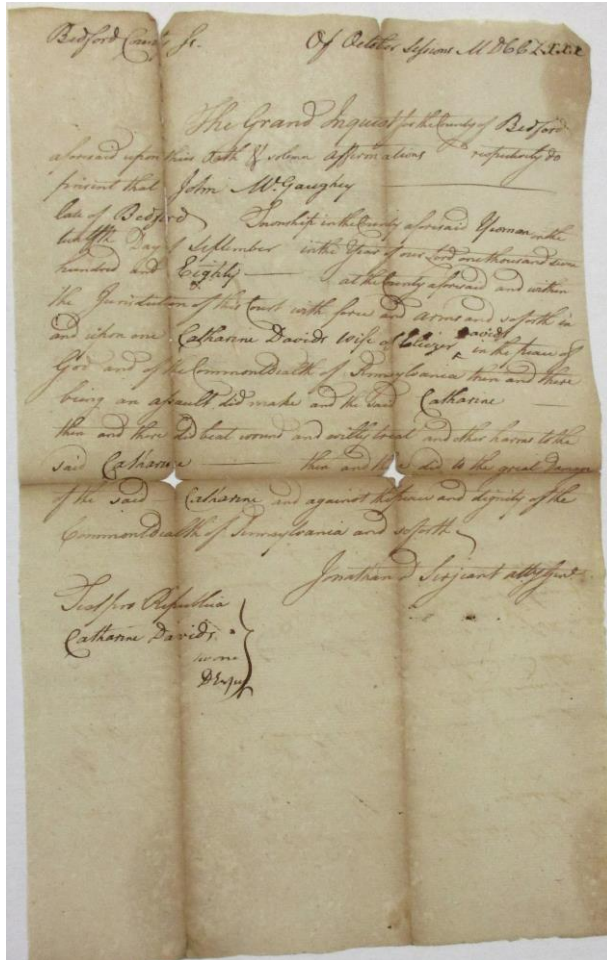 Bedford County Sc. Of October Sessions MDCCLXXX
The Grand Inquest for the County of Bedford
aforesaid upon their Oath & solemn affirmations respectively do
present that John McGaughey
late of Bedford Township in the County aforesaid Yeoman on the
twelfth Day of September in the Year of our Lord one thousand seven
hundred and Eighty at the County aforesaid and within
the Jurisdiction of this Court with force and Arms and soforth in
and upon one Catharine Davids Wife of Eliezer Davids in the peace of
God and of the Commonwealth of Pennsylvania then and there
being an assault did make and the said Catharine
then and there did beat wound and evilly treat and other harms to the
said Catharine then and there did to the great Damage
of the said Catharine and against the peace and dignity of the
Commonwealth of Pennsylvania and soforth
Jonathan D Serjeant atty Genl.
Testes pro Republica
Catharine Davids